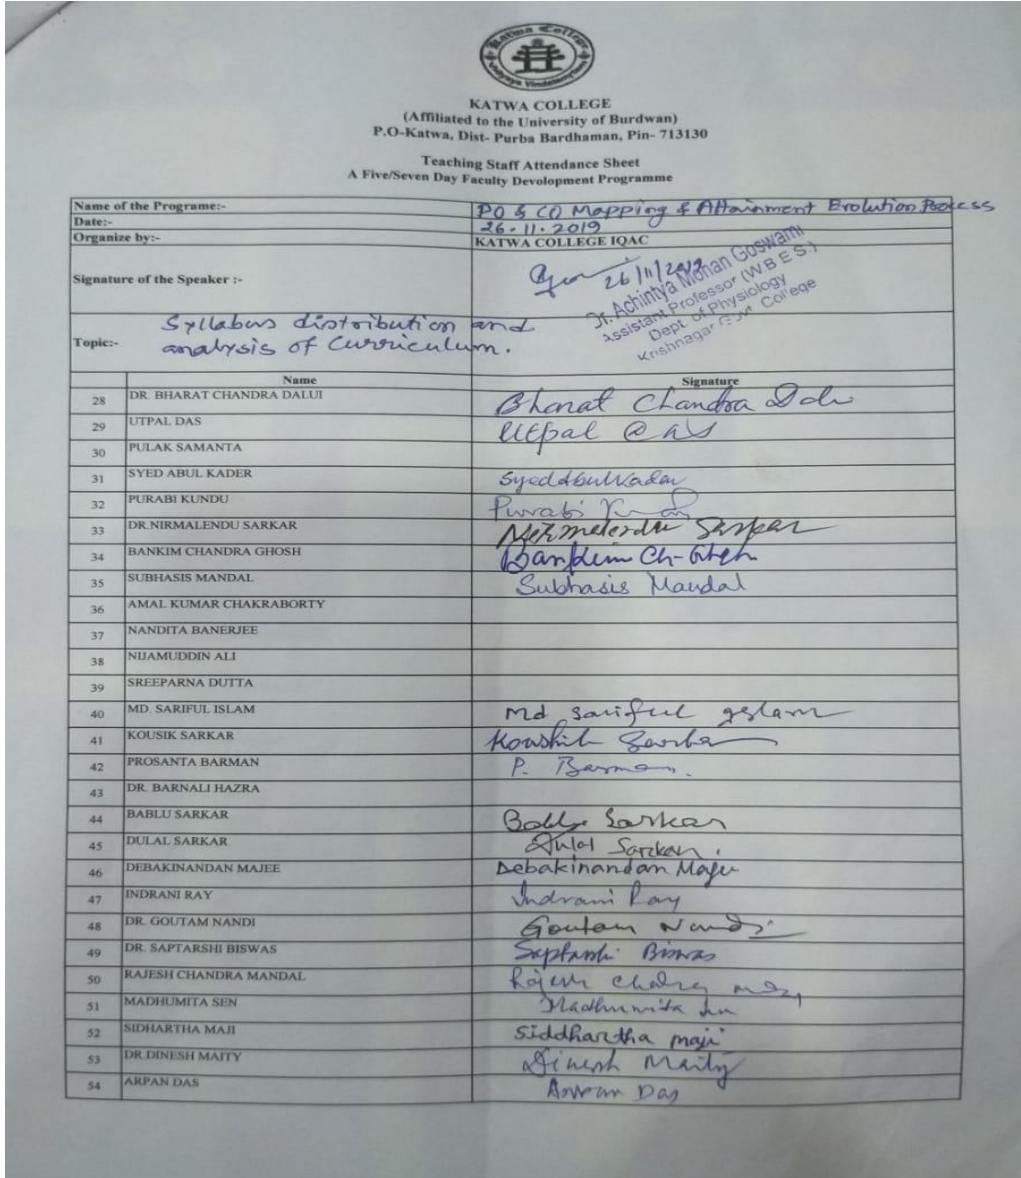 Katwa College
Vidyaya Vindateamritam
KATWA COLLEGE
(Affiliated to the University of Burdwan)
P.O-Katwa, Dist- Purba Bardhaman, Pin- 713130
Teaching Staff Attendance Sheet
A Five/Seven Day Faculty Devolopment Programme
Name of the Programe:- PO & CO Mapping & Attainment Evolution Process
Date:- 26.11.2019
Organize by:- KATWA COLLEGE IQAC
Signature of the Speaker :- 26/11/2019
Dr. Achintya Mohan Goswami
Assistant Professor (W.B.E.S.)
Dept. of Physiology
Krishnagar Govt. College
Topic:- Syllabus distribution and
analysis of Curriculum.
Name Signature
28 DR. BHARAT CHANDRA DALUI Bharat Chandra
29 UTPAL DAS Utpal Das
30 PULAK SAMANTA
31 SYED ABUL KADER Syed Abul Kader
32 PURABI KUNDU Purabi
33 DR.NIRMALENDU SARKAR Nirmalendu Sarkar
34 BANKIM CHANDRA GHOSH Bankim Ch. Ghosh
35 SUBHASIS MANDAL Subhasis Mandal
36 AMAL KUMAR CHAKRABORTY
37 NANDITA BANERJEE
38 NIJAMUDDIN ALI
39 SREEPARNA DUTTA
40 MD. SARIFUL ISLAM Md Sariful Islam
41 KOUSIK SARKAR Koushik Sarkar
42 PROSANTA BARMAN P. Barman.
43 DR. BARNALI HAZRA
44 BABLU SARKAR Bablu Sarkar
45 DULAL SARKAR Dulal Sarkar.
46 DEBAKINANDAN MAJEE Debakinandan Majee
47 INDRANI RAY Indrani Ray
48 DR. GOUTAM NANDI Goutam Nandi
49 DR. SAPTARSHI BISWAS Saptarshi Biswas
50 RAJESH CHANDRA MANDAL Rajesh Chandra
51 MADHUMITA SEN Madhumita Sen
52 SIDHARTHA MAJI Siddhartha maji
53 DR.DINESH MAITY Dinesh Maity
54 ARPAN DAS Arpan Das